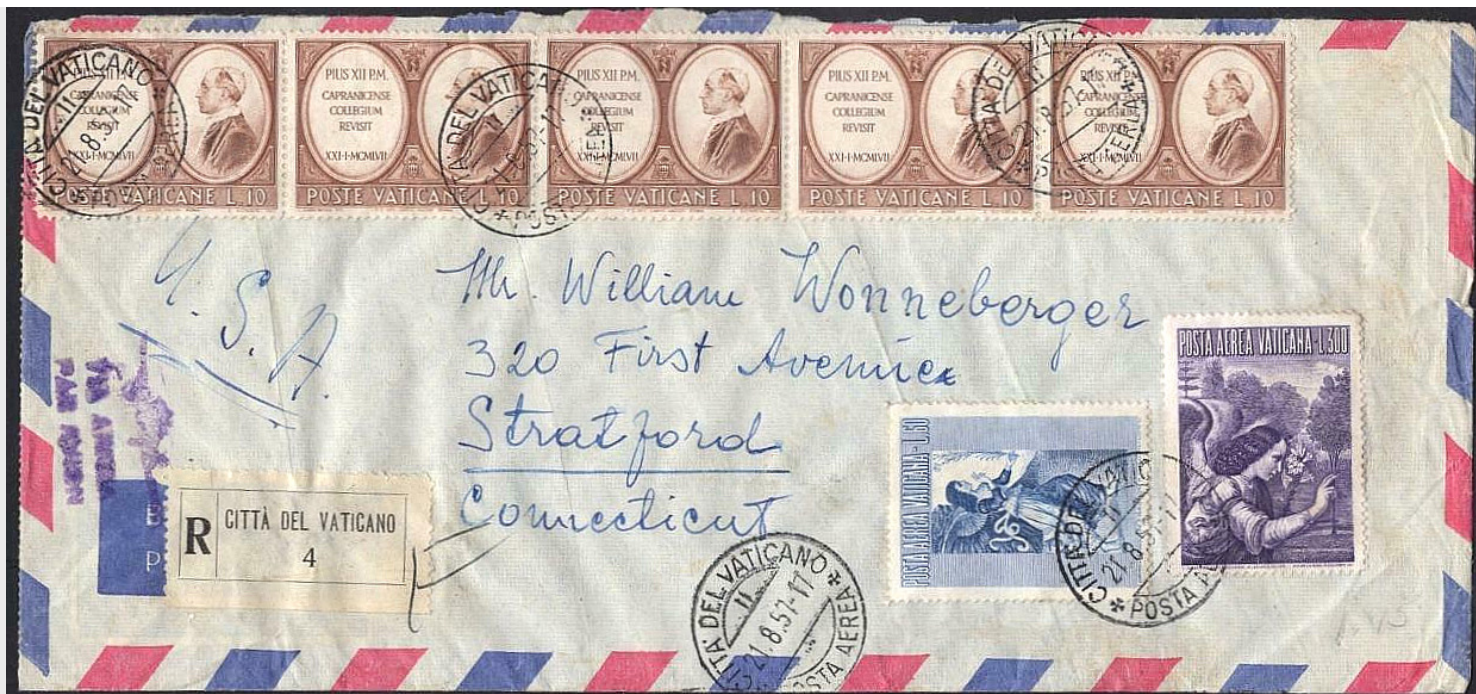 PIUS XII P.M.
CAPRANICENSE
COLLEGIUM
REVISIT
XXI·I·MCMLVII
POSTE VATICANE L.10
PIUS XII P.M.
CAPRANICENSE
COLLEGIUM
REVISIT
XXI·I·MCMLVII
POSTE VATICANE L.10
PIUS XII P.M.
CAPRANICENSE
COLLEGIUM
REVISIT
XXI·I·MCMLVII
POSTE VATICANE L.10
PIUS XII P.M.
CAPRANICENSE
COLLEGIUM
REVISIT
XXI·I·MCMLVII
POSTE VATICANE L.10
PIUS XII P.M.
CAPRANICENSE
COLLEGIUM
REVISIT
XXI·I·MCMLVII
POSTE VATICANE L.10
CITTA' DEL VATICANO
21.8.57-17
POSTA AEREA
CITTA' DEL VATICANO
21.8.57-17
POSTA AEREA
CITTA' DEL VATICANO
21.8.57-17
POSTA AEREA
U.S.A.
Mr. William Wonneberger
320 First Avenue
Stratford
Connecticut
VIA AEREA
PAR AVION
POSTA AEREA VATICANA-L.300
POSTA AEREA VATICANA-L.50
R
CITTÀ DEL VATICANO
4
CITTA' DEL VATICANO
21.8.57-17
POSTA AEREA
CITTA' DEL VATICANO
21.8.57-17
POSTA AEREA